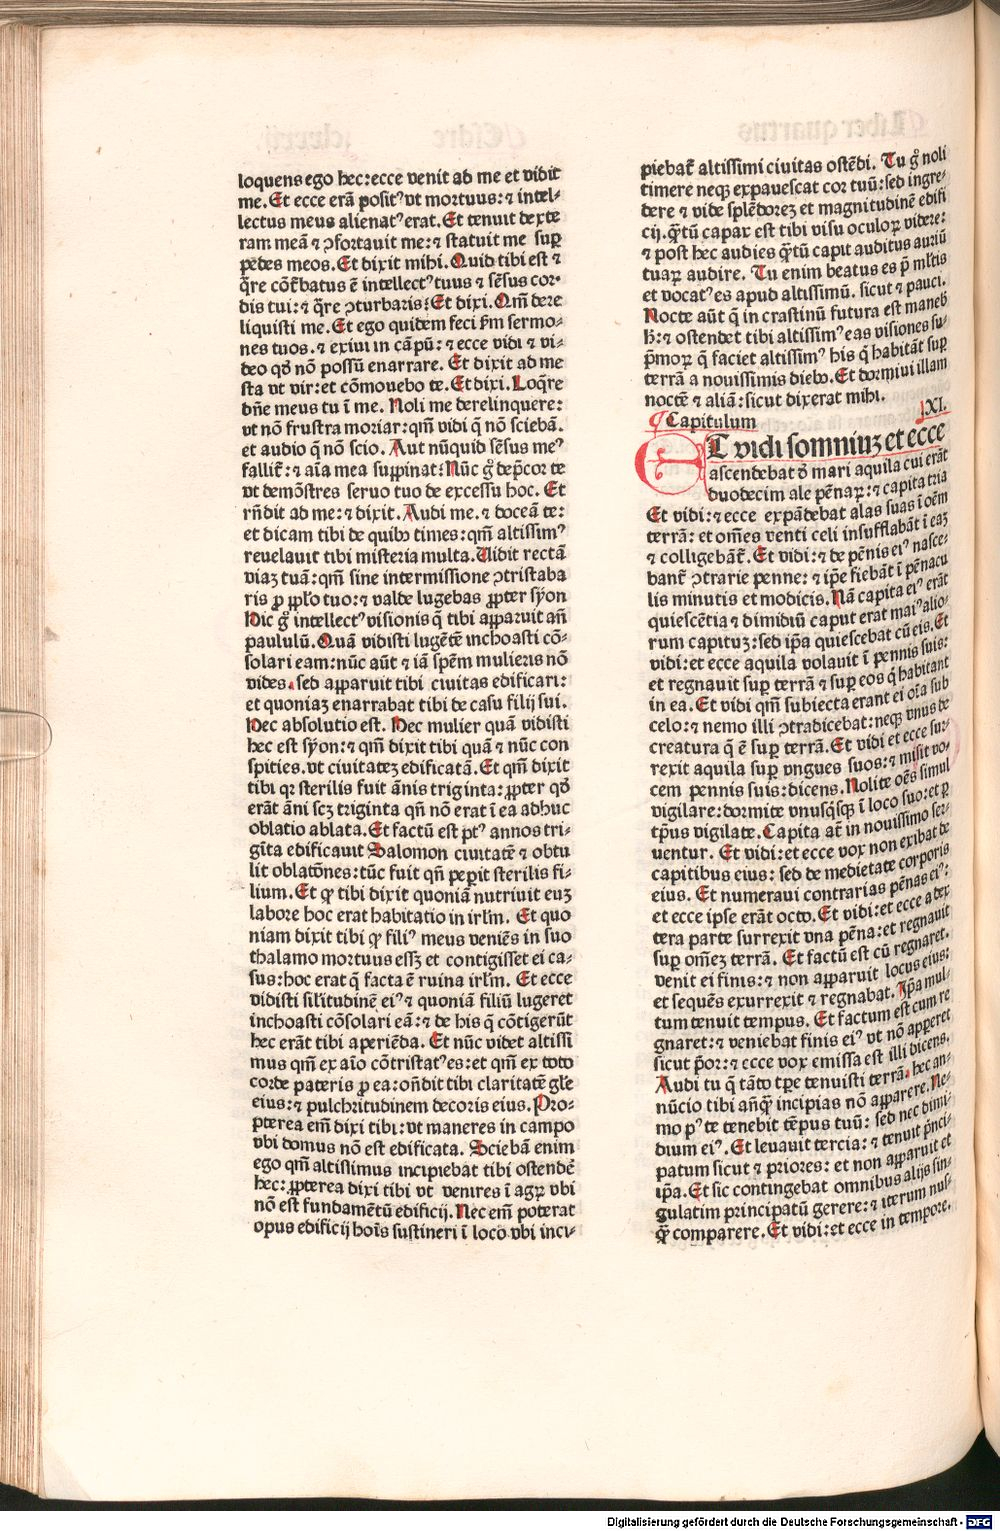 loquens ego hec:ecce venit ad me et vidit
me. Et ecce erã positꝰ vt mortuus: ⁊ intel-
lectus meus alienatꝰ erat. Et tenuit dexte
ram meã ⁊ ꝯfortauit me: ⁊ statuit me suꝑ
pedes meos. Et dixit mihi. Quid tibi est ⁊
q̃re cõt̃batus ẽ intellectꝰ tuus ⁊ sẽsus cor-
dis tui: ⁊ q̃re ꝯturbaris: Et dixi. Qm̃ dere
liquisti me. Et ego quidem feci ẜm sermo-
nes tuos. ⁊ exiui in cãpũ: ⁊ ecce vidi ⁊ vi-
deo qđ nõ possũ enarrare. Et dixit ad me
sta vt vir: et cõmouebo te. Et dixi. Loq̃re
dñe meus tu ĩ me. Noli me derelinquere:
vt nõ frustra moriar: qm̃ vidi q̃ nõ sciebã.
et audio q̃ nõ scio. Aut nũquid sẽsus meꝰ
fallit̃: ⁊ aĩa mea suꝑpinat: Nũc g̊ dep̃cor te
vt demõstres seruo tuo de excessu hoc. Et
rñdit ad me: ⁊ dixit. Audi me. ⁊ doceã te:
et dicam tibi de quibꝰ times: qm̃ altissimꝰ
reuelauit tibi misteria multa. Uidit rectã
viaz tuã: qm̃ sine intermissione ꝯtristaba
ris ꝓ pp̃lo tuo: ⁊ valde lugebas ꝓpter syon
Hic g̊ intellectꝰ visionis q̃ tibi apparuit añ
paululũ. Quã vidisti lugẽtẽ inchoasti cõ-
solari eam: nũc aũt ⁊ iã spẽm mulieris nõ
vides. sed apparuit tibi ciuitas edificari:
et quoniaz enarrabat tibi de casu filij sui.
Hec absolutio est. Hec mulier quã vidisti
hec est syon: ⁊ qm̃ dixit tibi quã ⁊ nũc con
spicies. vt ciuitatez edificatã. Et qm̃ dixit
tibi qꝛ sterilis fuit ãnis triginta: ꝓpter qđ
erãt ãni scz triginta qñ nõ erat ĩ ea adhuc
oblatio ablata. Et factũ est ptꝰ annos tri-
gĩta edificauit Salomon ciuitatẽ ⁊ obtu
lit oblatõnes: tũc fuit qñ peꝑit sterilis fi-
lium. Et ꝙ tibi dixit quoniã nutriuit euz
labore hoc erat habitatio in irlm̃. Et quo
niam dixit tibi ꝙ filiꝰ meus veniẽs in suo
thalamo mortuus essz et contigisset ei ca-
sus: hoc erat q̃ facta ẽ ruina irlm̃. Et ecce
vidisti silitudinẽ eiꝰ ⁊ quoniã filiũ lugeret
inchoasti cõsolari eã: ⁊ de his q̃ cõtigerũt
hec erãt tibi aperiẽda. Et nũc videt altissi
mus qm̃ ex aĩo cõtristatꝰ es: et qm̃ ex toto
corde pateris ꝓ ea: oñdit tibi claritatẽ gl̃e
eius: ⁊ pulchritudinem decoris eius. Pro-
pterea em̃ dixi tibi: vt maneres in campo
vbi domus nõ est edificata. Sciebã enim
ego qm̃ altissimus incipiebat tibi ostendẽ
hec: ꝓpterea dixi tibi vt venires ĩ agꝝ vbi
nõ est fundamẽtũ edificij. Nec em̃ poterat
opus edificij hoĩs sustineri ĩ loco vbi inci-
piebat̃ altissimi ciuitas ostẽdi. Tu g̊ noli
timere neqꝫ expauescat cor tuũ: sed ingre-
dere ⁊ vide splẽdorez et magnitudinẽ edifi
cij. q̃tũ capax est tibi visu oculoꝝ videre:
⁊ post hec audies q̃tũ capit auditus auriũ
tuaꝝ audire. Tu enim beatus es p̃ ml̃tis
et vocatꝰ es apud altissimũ. sicut ⁊ pauci.
Nocte aũt q̃ in crastinũ futura est maneb̃
h̃: ⁊ ostendet tibi altissimꝰ eas visiones su-
p̃moꝝ q̃ faciet altissimꝰ his q̃ habitãt suꝑ
terrã a nouissimis diebꝰ. Et dormiui illam
noctẽ ⁊ aliã: sicut dixerat mihi.
Capitulum XI.
Et vidi somniuz et ecce
ascendebat đ mari aquila cui erãt
duodecim ale pẽnaꝝ: ⁊ capita tria
Et vidi: ⁊ ecce expãdebat alas suas ĩ oẽm
terrã: et om̃es venti celi insufflabãt ĩ eaz
⁊ colligebãt̃. Et vidi: ⁊ de pẽnis eiꝰ nasce-
bant̃ ꝯtrarie penne: ⁊ ip̃e fiebãt ĩ pẽnacu
lis minutis et modicis. Nã capita eiꝰ erãt
quiescẽtia ⁊ dimidiũ caput erat maiꝰ alio-
rum capituz: sed ip̃a quiescebat cũ eis. Et
vidi: et ecce aquila volauit ĩ pennis suis:
et regnauit suꝑ terrã ⁊ suꝑ eos q̃ habitant
in ea. Et vidi qm̃ subiecta erant ei oĩa sub
celo: ⁊ nemo illi ꝯtradicebat: neqꝫ vnus de
creatura q̃ ẽ suꝑ terrã. Et vidi et ecce sur-
rexit aquila suꝑ vngues suos: ⁊ misit vo-
cem pennis suis: dicens. Nolite oẽs simul
vigilare: dormite vnusq̃sqꝫ ĩ loco suo: et ꝑ
tp̃us vigilate. Capita at̃ in nouissimo ser-
uentur. Et vidi: et ecce vox non exibat de
capitibus eius: sed de medietate corporis
eius. Et numeraui contrarias pẽnas eiꝰ:
et ecce ipse erãt octo. Et vidi: et ecce a dex
tera parte surrexit vna pẽna: et regnauit
suꝑ om̃ez terrã. Et factũ est cũ regnaret.
venit ei finis: ⁊ non apparuit locus eius:
et sequẽs exurrexit ⁊ regnabat. Ip̃a mul-
tum tenuit tempus. Et factum est cum re
gnaret: ⁊ veniebat finis eiꝰ vt nõ apperet
sicut p̃or: ⁊ ecce vox emissa est illi dicens.
Audi tu q̃ tãto tꝑe tenuisti terrã. hec an-
nũcio tibi añq̃ incipias nõ apparere. Ne-
mo pꝰ te tenebit tẽpus tuũ: sed nec dimi-
dium eiꝰ. Et leuauit tercia: ⁊ tenuit p̃nci-
patum sicut ⁊ priores: et non apparuit et
ip̃a. Et sic contingebat omnibus alijs sin-
gulatim principatũ gerere: ⁊ iterum nus-
q̃ comparere. Et vidi: et ecce in tempore.
Digitalisierung gefördert durch die Deutsche Forschungsgemeinschaft - DFG